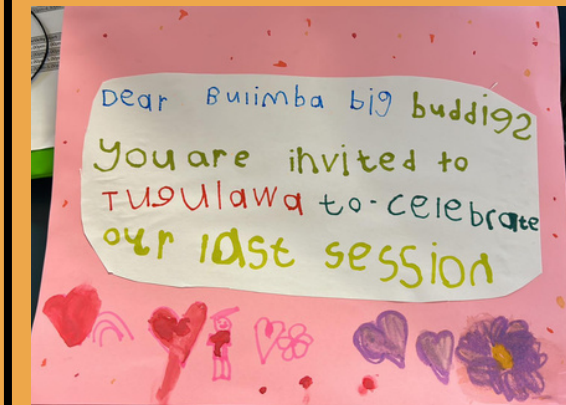 Dear Bulimba big buddies
You are invited to
Tugulawa to-celebrate
our last session